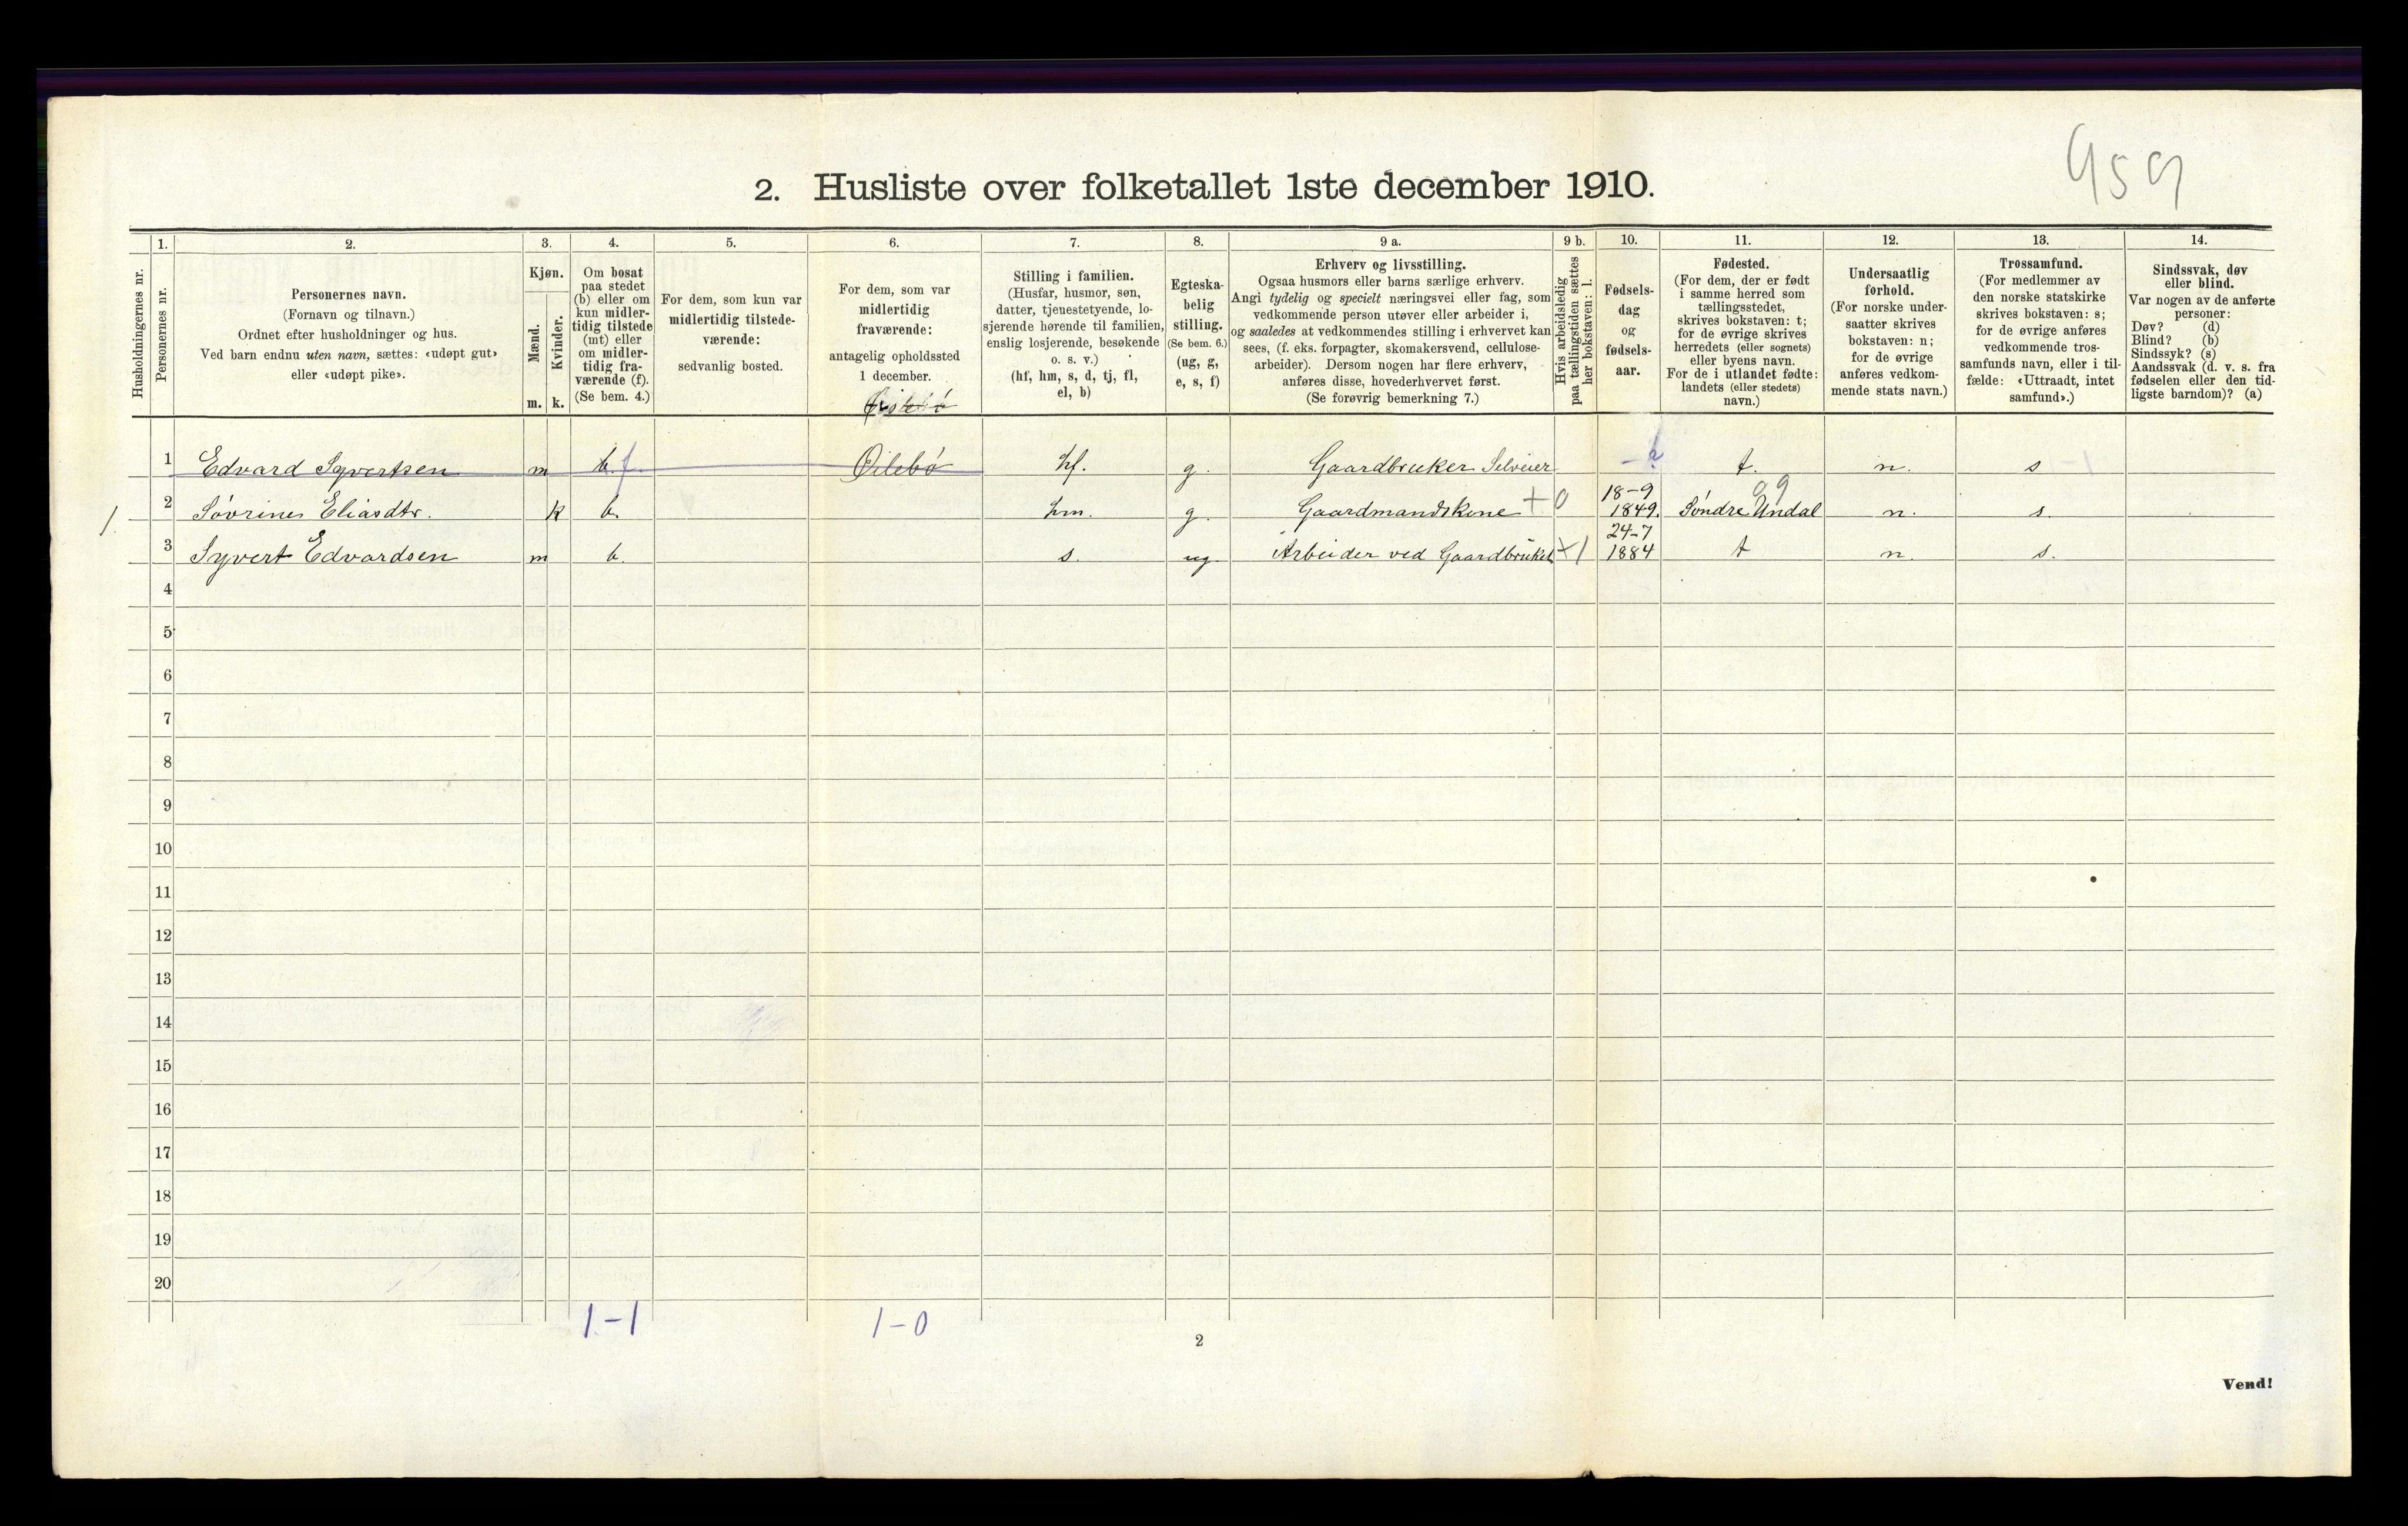 959
2. Husliste over folketallet 1ste december 1910.
Husholdningernes nr.
1.
Personernes nr.
2.
Personernes navn.
(Fornavn og tilnavn.)
Ordnet efter husholdninger og hus.
Ved barn endnu uten navn, sættes: «udøpt gut»
eller «udøpt pike».
3.
Kjøn.
Mænd.
Kvinder.
m. k.
4.
Om bosat
paa stedet
(b) eller om
kun midler-
tidig tilstede
(mt) eller
om midler-
tidig fra-
værende (f).
(Se bem. 4.)
5.
For dem, som kun var
midlertidig tilstede-
værende:
sedvanlig bosted.
6.
For dem, som var
midlertidig
fraværende:
antagelig opholdssted
1 december.
7.
Stilling i familien.
(Husfar, husmor, søn,
datter, tjenestetyende, lo-
sjerende hørende til familien,
enslig losjerende, besøkende
o. s. v.)
(hf, hm, s, d, tj, fl,
el, b)
8.
Egteska-
belig
stilling.
(Se bem. 6.)
(ug, g,
e, s, f)
9 a.
Erhverv og livsstilling.
Ogsaa husmors eller barns særlige erhverv.
Angi tydelig og specielt næringsvei eller fag, som
vedkommende person utøver eller arbeider i,
og saaledes at vedkommendes stilling i erhvervet kan
sees, (f. eks. forpagter, skomakersvend, cellulose-
arbeider). Dersom nogen har flere erhverv,
anføres disse, hovederhvervet først.
(Se forøvrig bemerkning 7.)
9 b.
Hvis arbeidsledig
paa tællingstiden sættes
her bokstaven: l.
10.
Fødsels-
dag
og
fødsels-
aar.
11.
Fødested.
(For dem, der er født
i samme herred som
tællingsstedet,
skrives bokstaven: t;
for de øvrige skrives
herredets (eller sognets)
eller byens navn.
For de i utlandet fødte:
landets (eller stedets)
navn.)
12.
Undersaatlig
forhold.
(For norske under-
saatter skrives
bokstaven: n;
for de øvrige
anføres vedkom-
mende stats navn.)
13.
Trossamfund.
(For medlemmer av
den norske statskirke
skrives bokstaven: s;
for de øvrige anføres
vedkommende tros-
samfunds navn, eller i til-
fælde: «Uttraadt, intet
samfund».)
14.
Sindssvak, døv
eller blind.
Var nogen av de anførte
personer:
Døv? (d)
Blind? (b)
Sindssyk? (s)
Aandssvak (d. v. s. fra
fødselen eller den tid-
ligste barndom)? (a)
1 Edvard Syvertsen m b. f Øilebø hf. g. Gaardbruker Selveier t. n. s
1. 2 Søvrine Eliasdtr. k b. hm. g. Gaardmandskone + 0 18-9 1849. Søndre Undal n. s.
99
3 Syvert Edvardsen m b. s. ug Arbeider ved Gaardbruket + 1 24-7 1884 t n. s.
4
5
6
7
8
9
10
11
12
13
14
15
16
17
18
19
20
1-1 1-0
2
Vend!